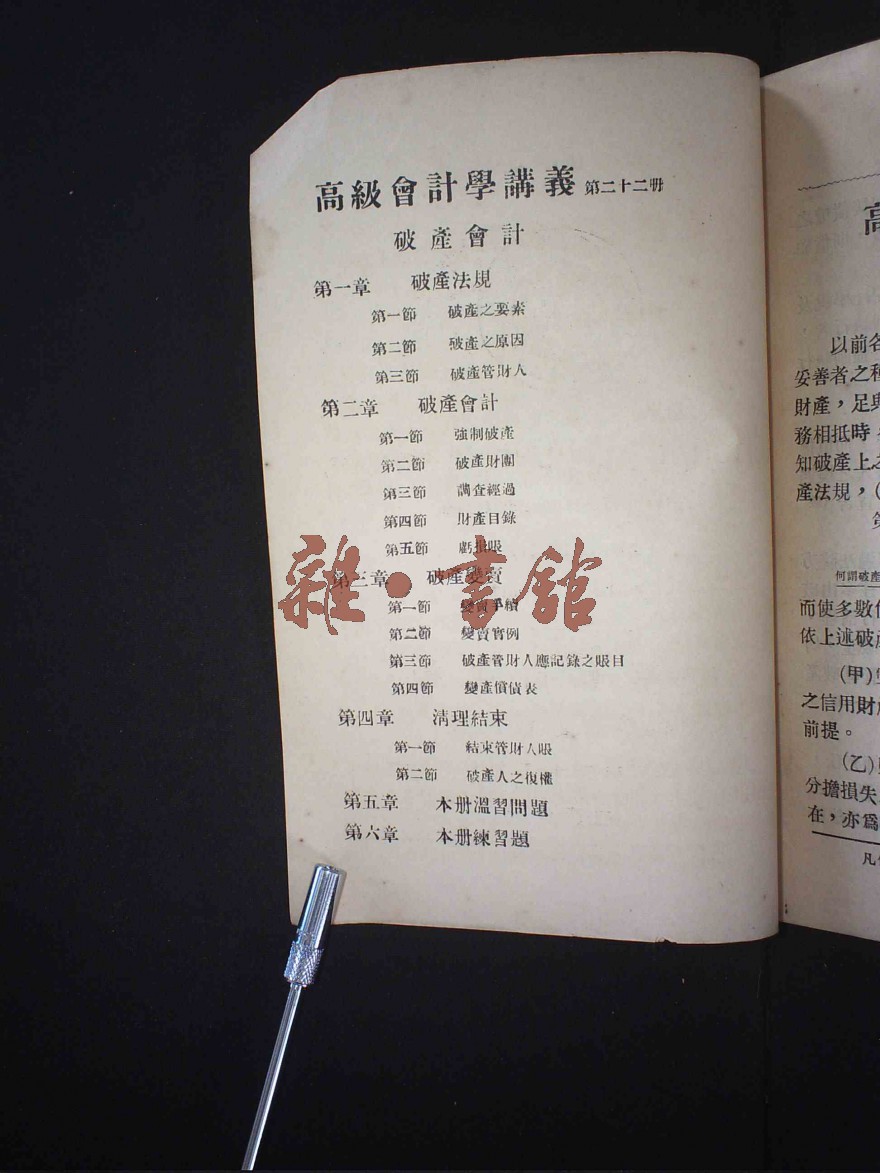 高級會計學講義 第二十二册
破產會計
第一章 破產法規
第一節 破產之要素
第二節 破產之原因
第三節 破產管財人
第二章 破產會計
第一節 強制破產
第二節 破產財團
第三節 調查經過
第四節 財產目錄
第五節 虧損賬
第三章 破產變賣
第一節 變賣手續
第二節 變賣實例
第三節 破產管財人應記錄之賬目
第四節 變產償債表
第四章 清理結束
第一節 結束管財人賬
第二節 破產人之復權
第五章 本册溫習問題
第六章 本册練習題
雜·書館
高
以前各
妥善者之種
財產，足與
務相抵時
知破產上之
產法規，（
第
何謂破產
而使多數債
依上述破產
（甲）
之信用財產
前提。
（乙）
分擔損失
在，亦爲
凡